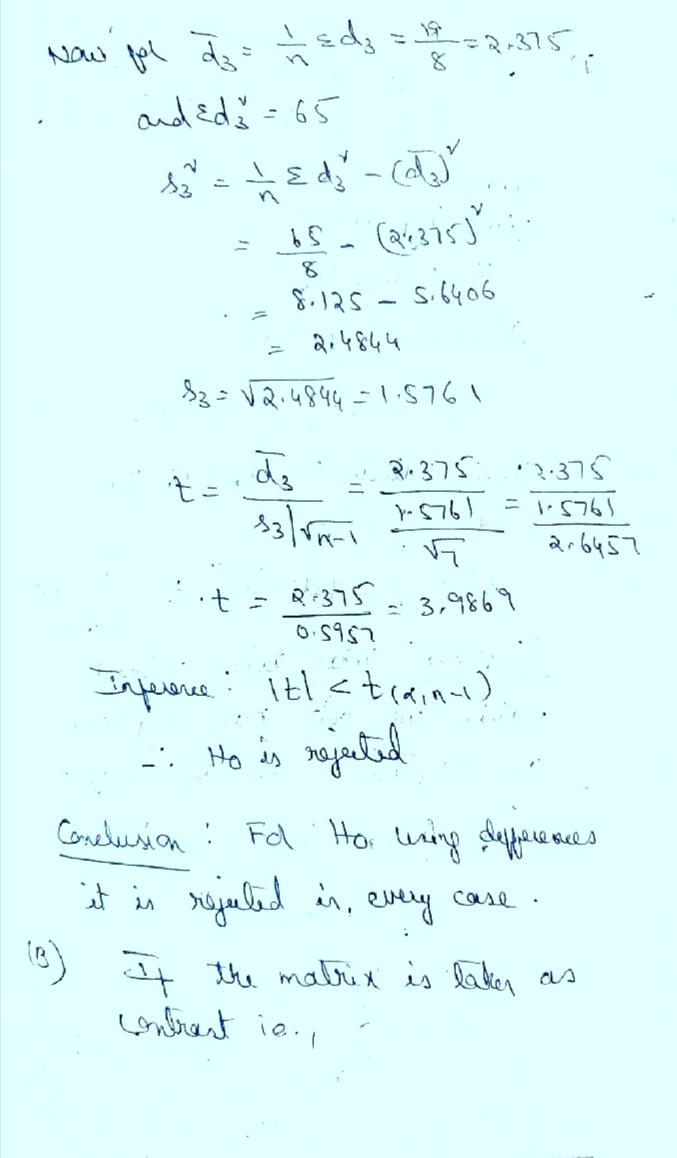 Now for d̅₃ = 1/n Σd₃ = 19/8 = 2.375 ;
and Σd₃² = 65
s₃² = 1/n Σ d₃² - (d̅₃)²
= 65/8 - (2.375)²
= 8.125 - 5.6406
= 2.4844
s₃ = √2.4844 = 1.5761
t = d̅₃ / (s₃/√n-1) = 2.375 / (1.5761/√7) = 2.375 / (1.5761/2.6457)
∴ t = 2.375/0.5957 = 3.9869
Inference : |t| < t(α,n-1)
∴ H₀ is rejected
Conclusion : For H₀, using differences
it is rejected in, every case .
(B) If the matrix is taken as
contrast i.e.,